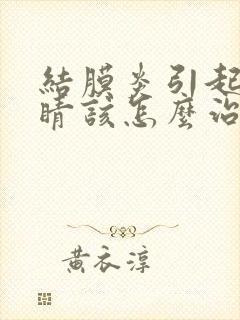 結膜炎引起
睛該怎麼治
黃衣淳